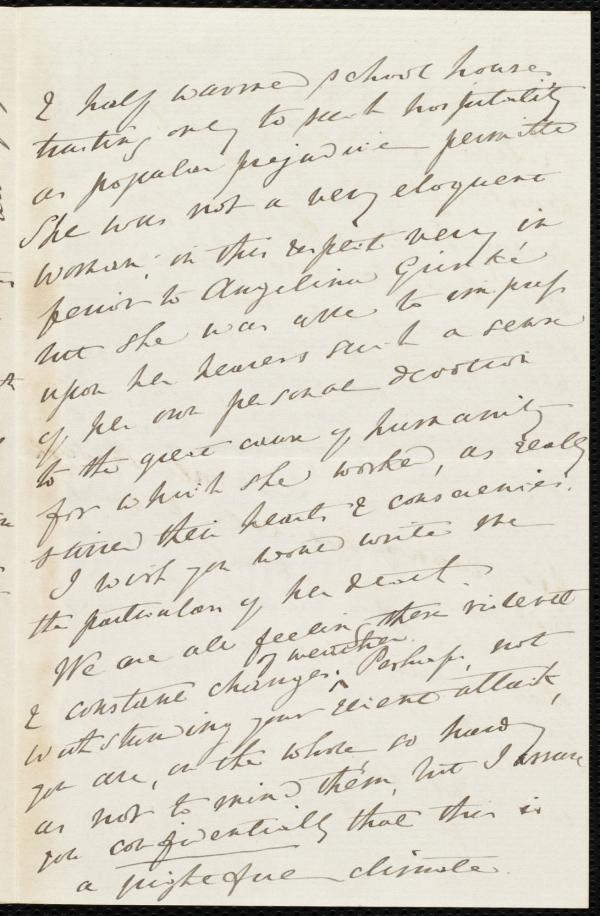 & half warmed school houses,
trusting only to such hospitality
as popular prejudice permitted
She was not a very eloquent
woman; in this respect very in
ferior to Angelina Grimké
but she was able to impress
upon her hearers such a sense
of her own personal devotion
to the great cause of humanity
for which she worked, as really
stirred their hearts & consciences.
I wish you would write me
the particulars of her death.
We are all feeling these violent
& constant changes of weather. Perhaps, not
withstanding your recent attack,
you are, on the whole, so hardy
as not to mind them, but I assure
you confidentially that this is
a frightful climate.